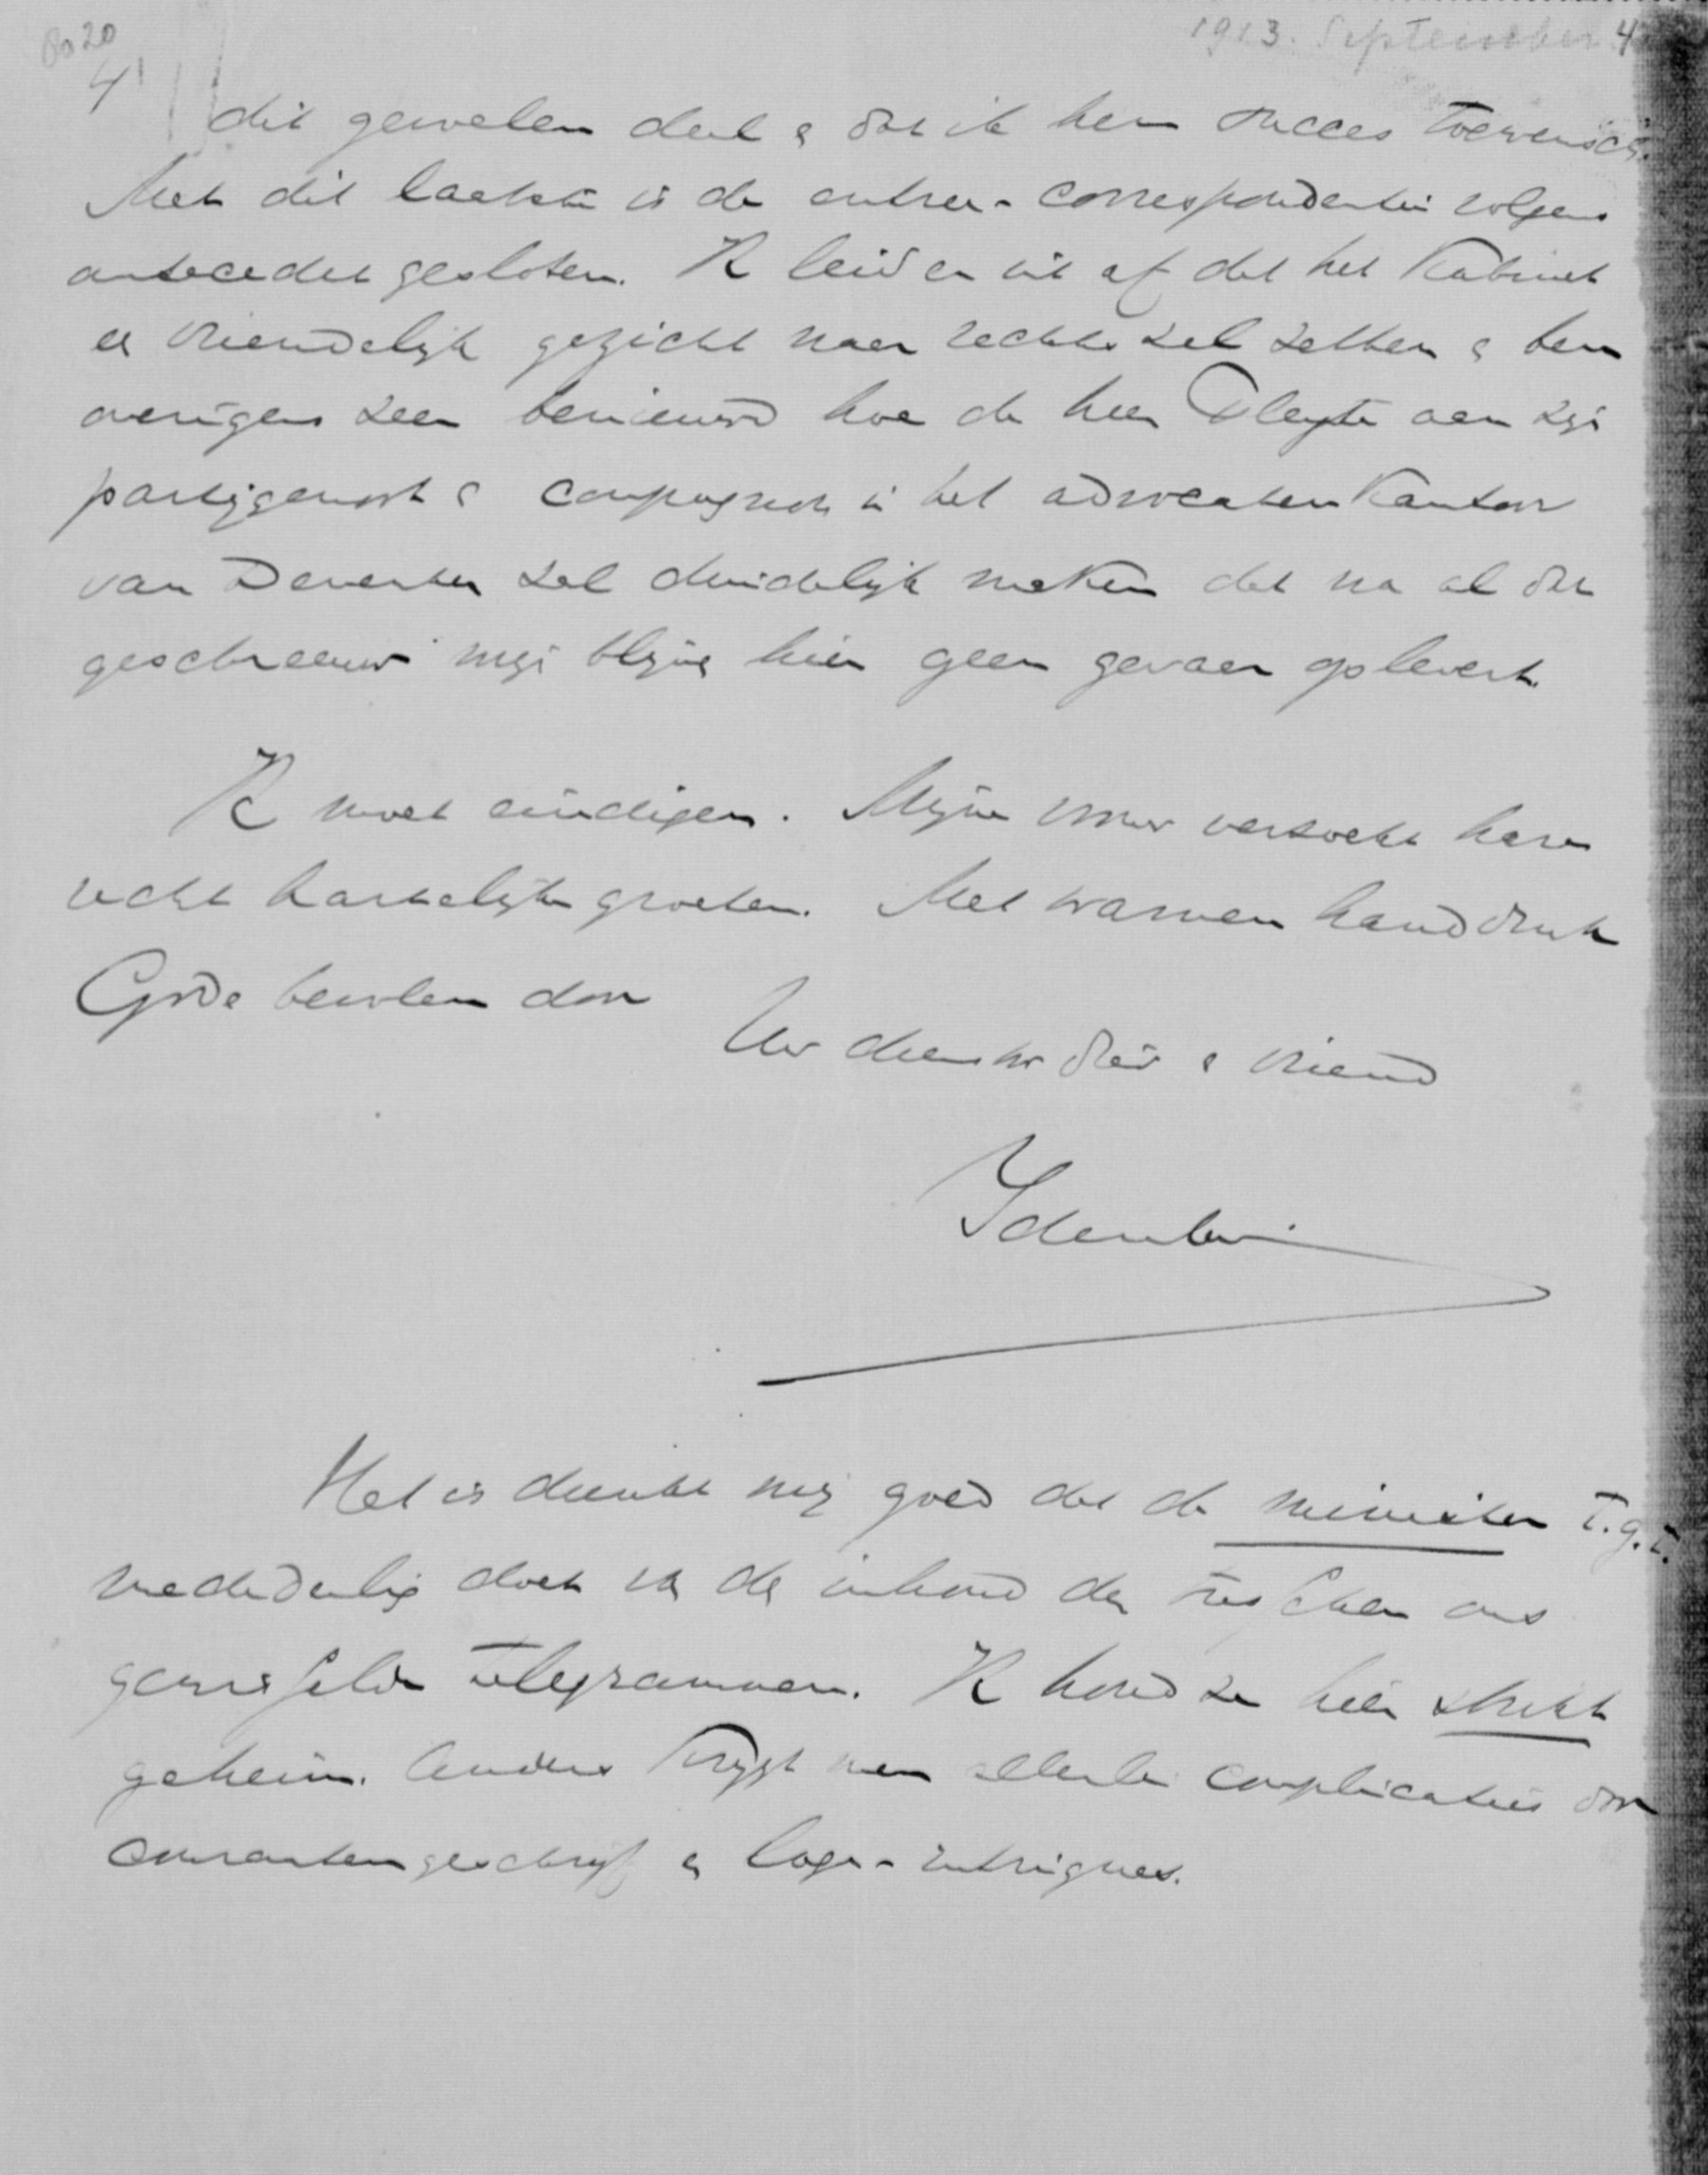 Bo 20
1913. September 4
4
dit gevoelen deel & dat ik hem succes toewensch.
Met dit laatste is de entree-correspondentie volgens
antecedent gesloten. Ik leid er uit af dat het Kabinet
een vriendelijk gezicht naar rechts zal zetten & ben
overigens zeer benieuwd hoe de heer Pleyte aan zijn
partijgenoot & compagnon in het advocatenkantoor
van Deventer zal duidelijk maken dat na al dat
geschreeuw mijn blijven hier geen gevaar oplevert.
Ik moet eindigen. Mijne vrouw verzoekt hare
recht hartelijke groeten. Met warmen handdruk
Gode bevolen door
Uw dienstw dr & vriend
Idenburg
Het is dunkt mij goed dat de minister t.g.t.
mededeeling doet van den inhoud der tusschen ons
gewisselde telegrammen. Ik houd ze hier strikt
geheim. Anders krijgt men allerlei complicaties door
courantengeschrijf & loge-intrigues.